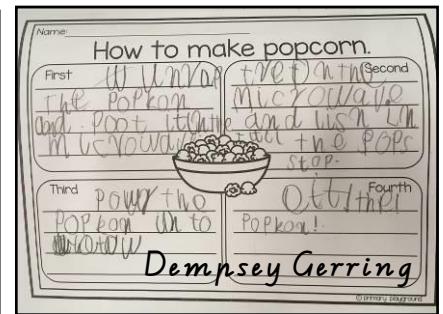 Name:
How to make popcorn.
First
W UnWrap
the PoPkon
and. Poot it in the
Microwave
Second
tret on the
Microwave
and lisn un
till the POPs
stop.
Third
Powr tho
POPkon in to
Fourth
thei
POPkon!.
Dempsey Gerring
© primary playground